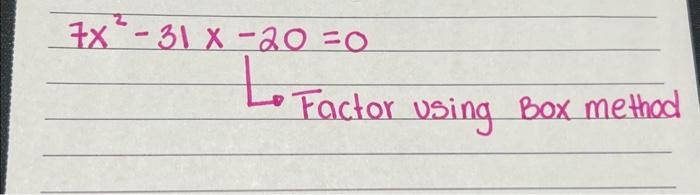 7x² - 31x - 20 = 0
Factor using Box method